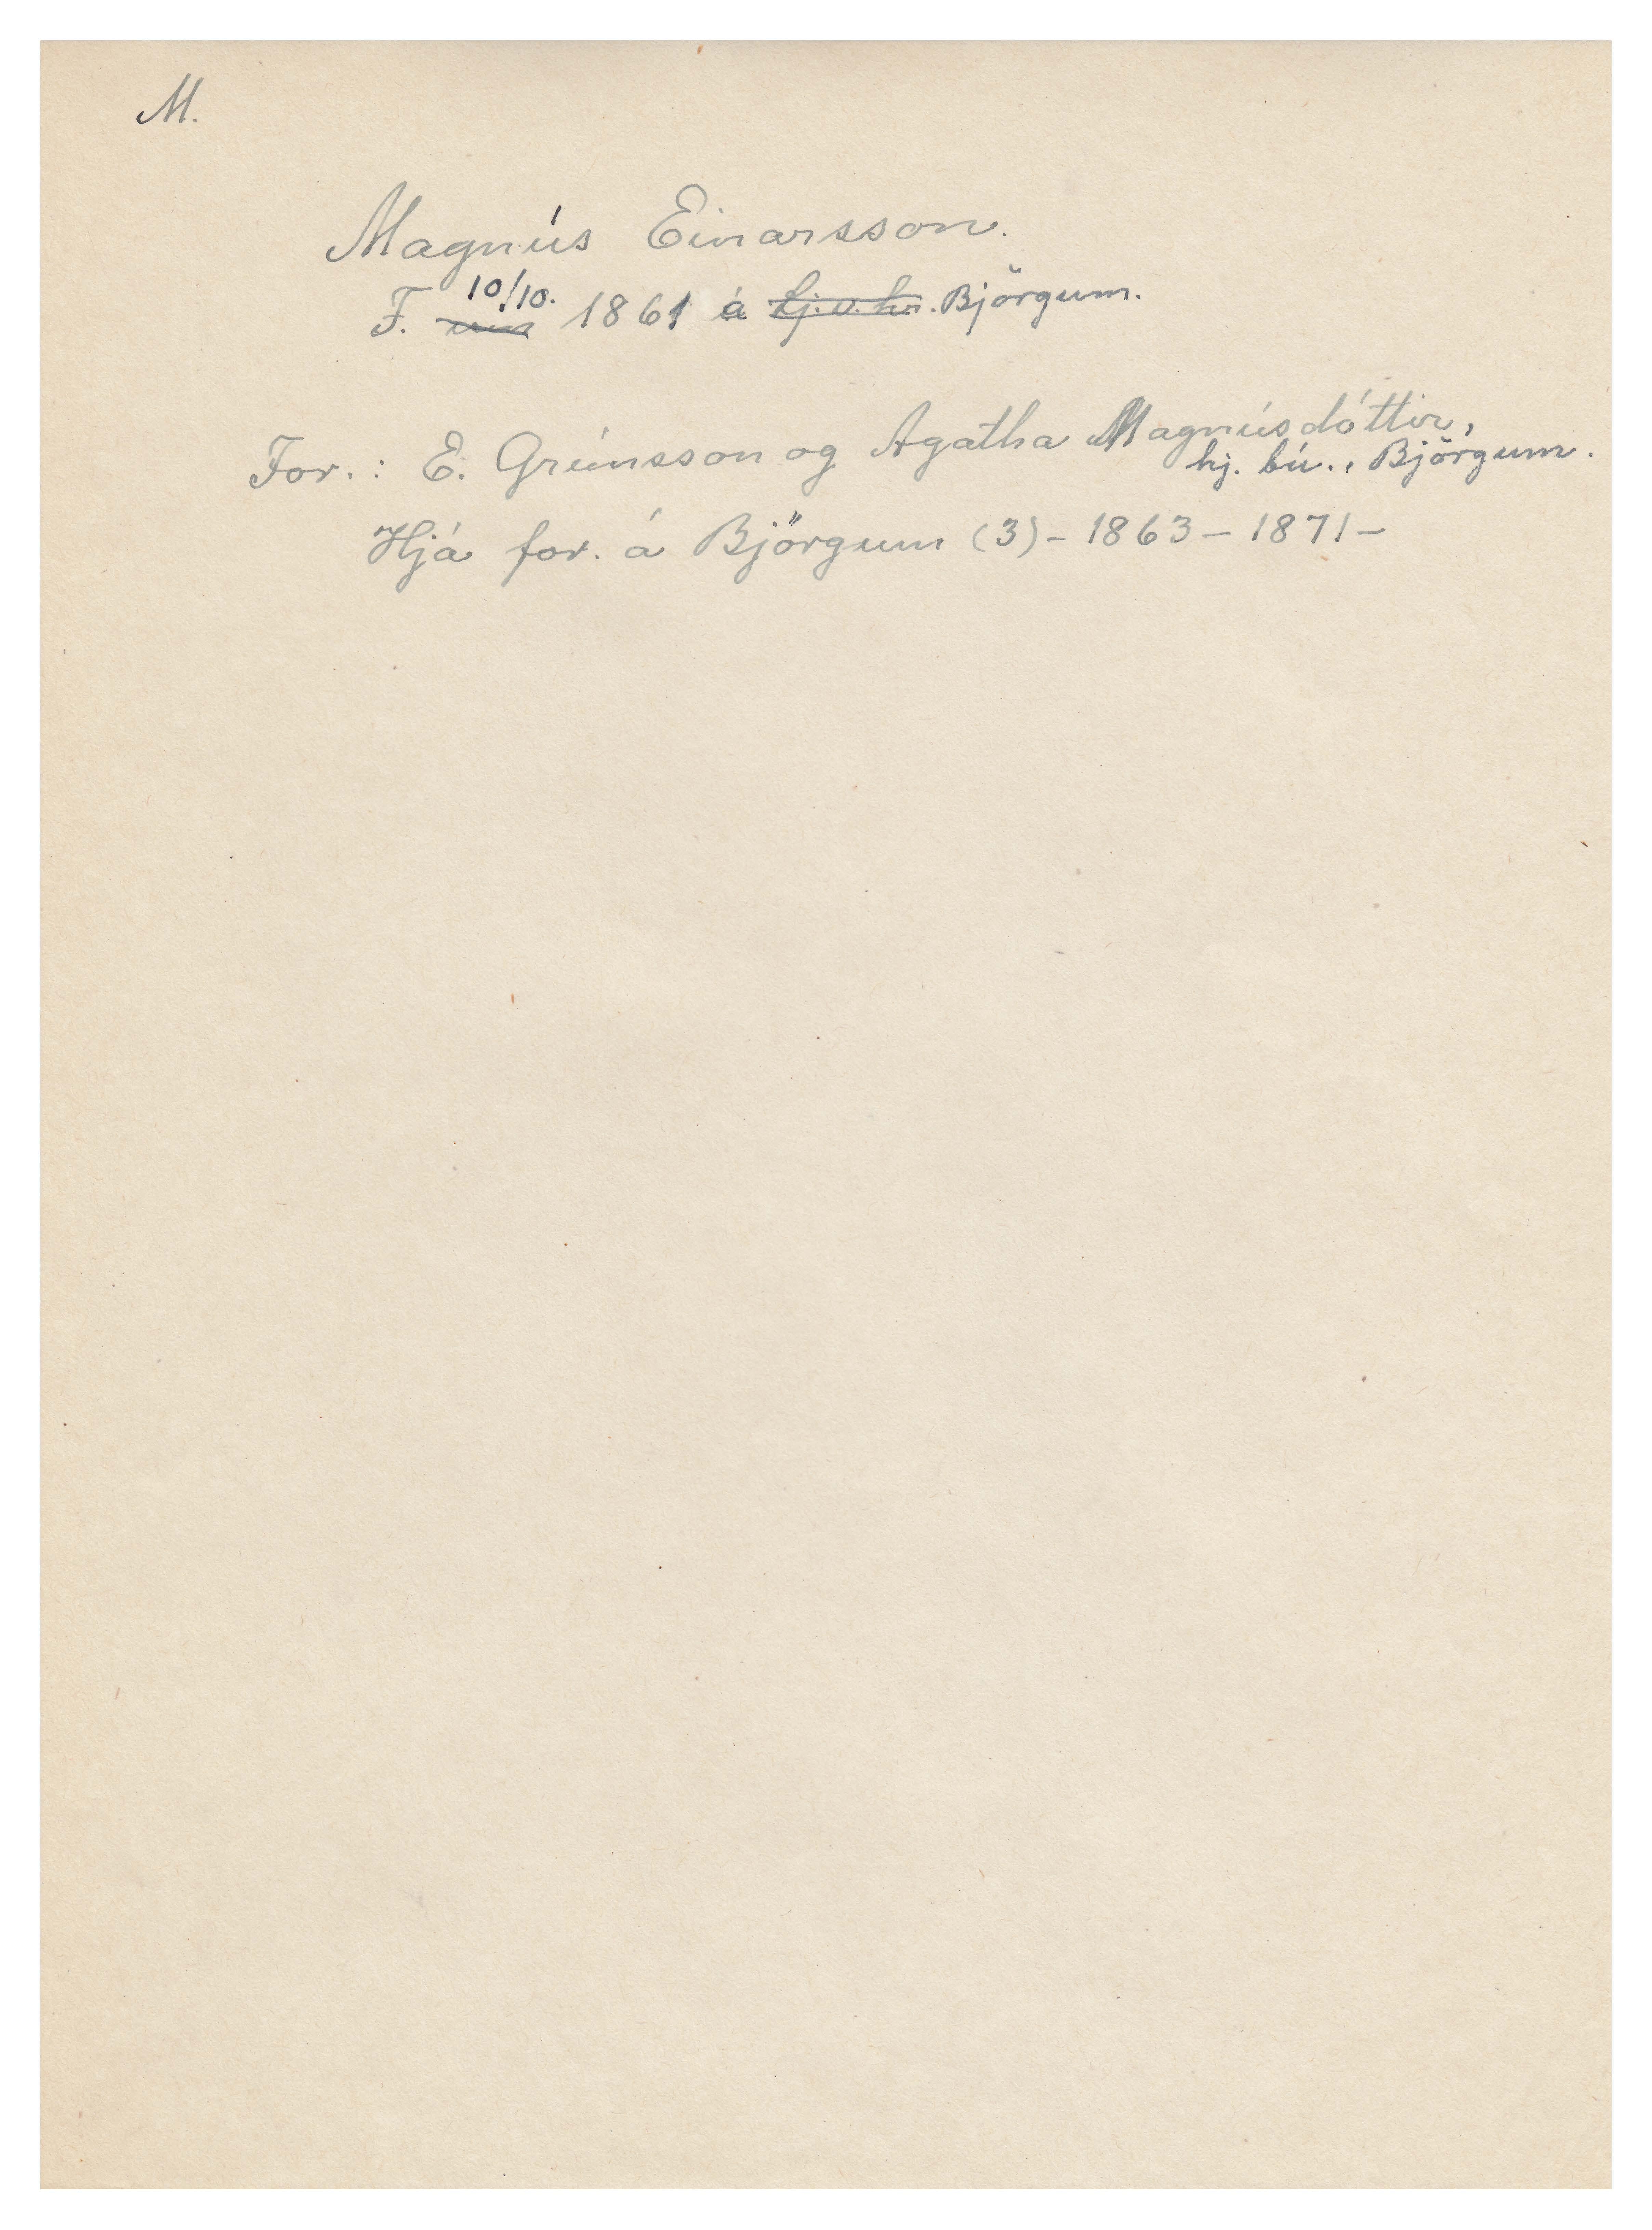 M.
Magnús Einarsson.
F. 10/10. 1861 á Lj.v.hr. Björgum.
For. : E. Grímsson og Agatha Magnúsdóttir,
hj. bú., Björgum.
Hjá for. á Björgum (3) - 1863 - 1871 -